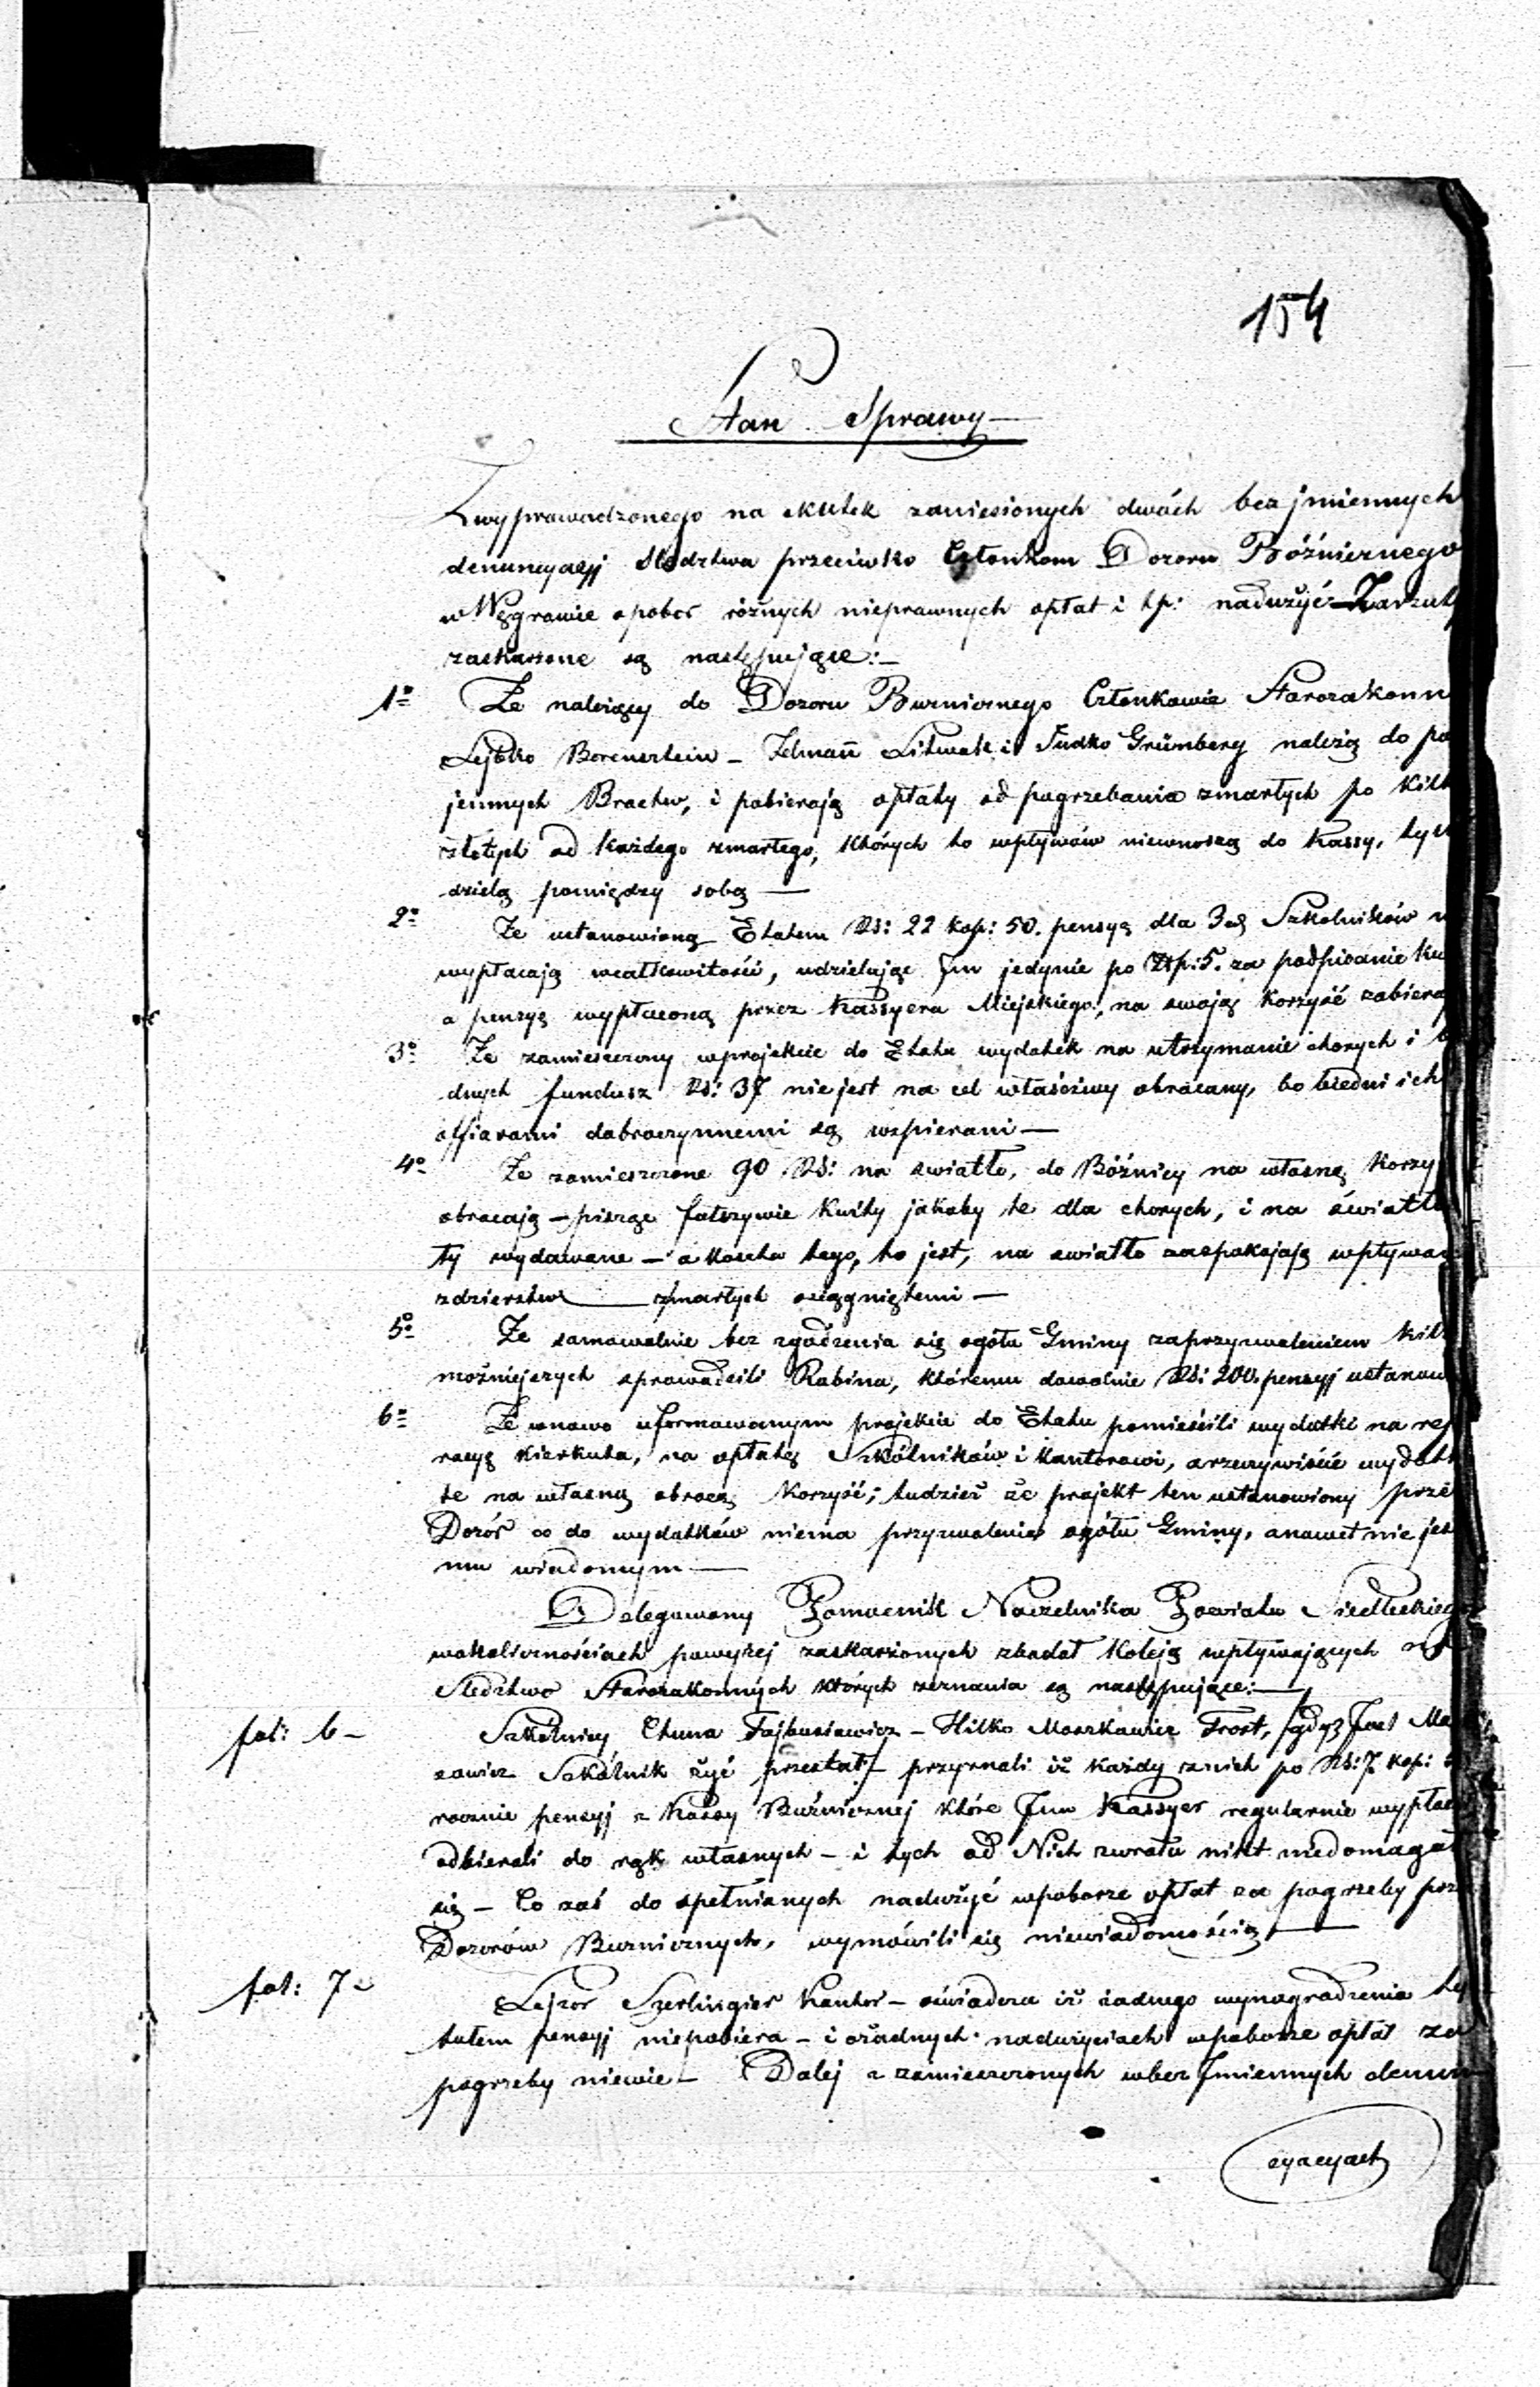 154
Stan Sprawy
Z wyprowadzonego na skutek zaniesionych dwóch bezjmiennych
denuncyacyj śledztwa przeciwko Członkom Dozoru Bóźnicznego
w Węgrowie o pobór różnych nieprawnych opłat i tp: nadużyć – Zarzuty
zaskarżone są następujące: –
1º Że należący do Dozoru Buzniczego Członkowie Starozakonn
Lejbko Borensztein – Zelman Litwak i Judko Grünberg należą do po
jemnych Bractw, i pobierają opłaty od pogrzebania zmarłych po kilk
złotych od każdego zmarłego, których to wpływów niewnoszą do Kassy, tyl
dzielą pomiędzy sobą —
2º Że ustanowioną Etatem Rs: 22 kop: 50. pensyą dla 3ch Szkolników n
wypłacają wcałkowitości, udzielając Jm jedynie po Złp: 5. za podpisanie kw
a pensyą wypłaconą przez Kassyera Miejskiego, na swoją korzyść zabiera
3º Że zamieszczony wprojekcie do Etatu wydatek na utrzymanie chorych i b
dnych fundusz Rs: 37 nie jest na cel właściwy obracany, bo biedni ich
offiarami dobroczynnemi są wspierani —
4º Że zamieszczone 90 Rs: na swiatło, do Bóźnicy na własną korzy
obracają – pisząc fałszywie kwity jakoby te dla chorych, i na światło
ty wydawane – a koszta tego, to jest, na swiatło zaspokajają wpływa
zdzierstw zmarłych osiągniętemi —
5º Że samowolnie bez zgodzenia się ogółu Gminy zaprzyzwoleniem kilk
możniejszych sprowadzili Rabina, któremu dowolnie Rs: 200. pensyj ustanow
6º Że wnowo uformowanym projekcie do Etatu pomieścili wydatki na rep
racyą kierkuta, na opłatę Szkólników i kantorowi, a rzeczywiście wydatk
te na własną obracą korzyść; tudzież że projekt ten ustanowiony prze
Dozór co do wydatków niema przyzwolenia ogółu Gminy, a nawet nie jes
mu wiadomym —
Delegowany Pomocnik Naczelnika Powiatu Siedleckiego
wokolicznościach powyżej zaskarżonych zbadał koleją wpływających
Śledztwo Starozakonnych których zeznania są następujące: —
fol: 6 – Szkólnicy Chuna Fajbusiewicz – Hilko Moszkowicz Frost, /gdyż Josl Mo
zowicz Szkólnik żyć przestał/ – przyznali iż każdy znich po Rs: 7 kop: 5
rocznie pensyj z Kassy Buźnicznej które Jim Kassyer regularnie wypłac
odbierali do rąk własnych – i tych od Nich zwrotu nikt niedomagał
się – Co zaś do spełnianych nadużyć wpoborze opłat za pogrzeby prz
Dozorów Buznicznych, wymówili się niewiadomością —
fol: 7 – Lejzor Szerlingier Kantor – oświadcza iż żadnego wynagrodzenia ty
tułem pensyj niepobiera – i ożadnych nadużyciach wpoborze opłat za
pogrzeby niewie – Dalej z zamieszczonych wbezJmiennych denun
cyacyach